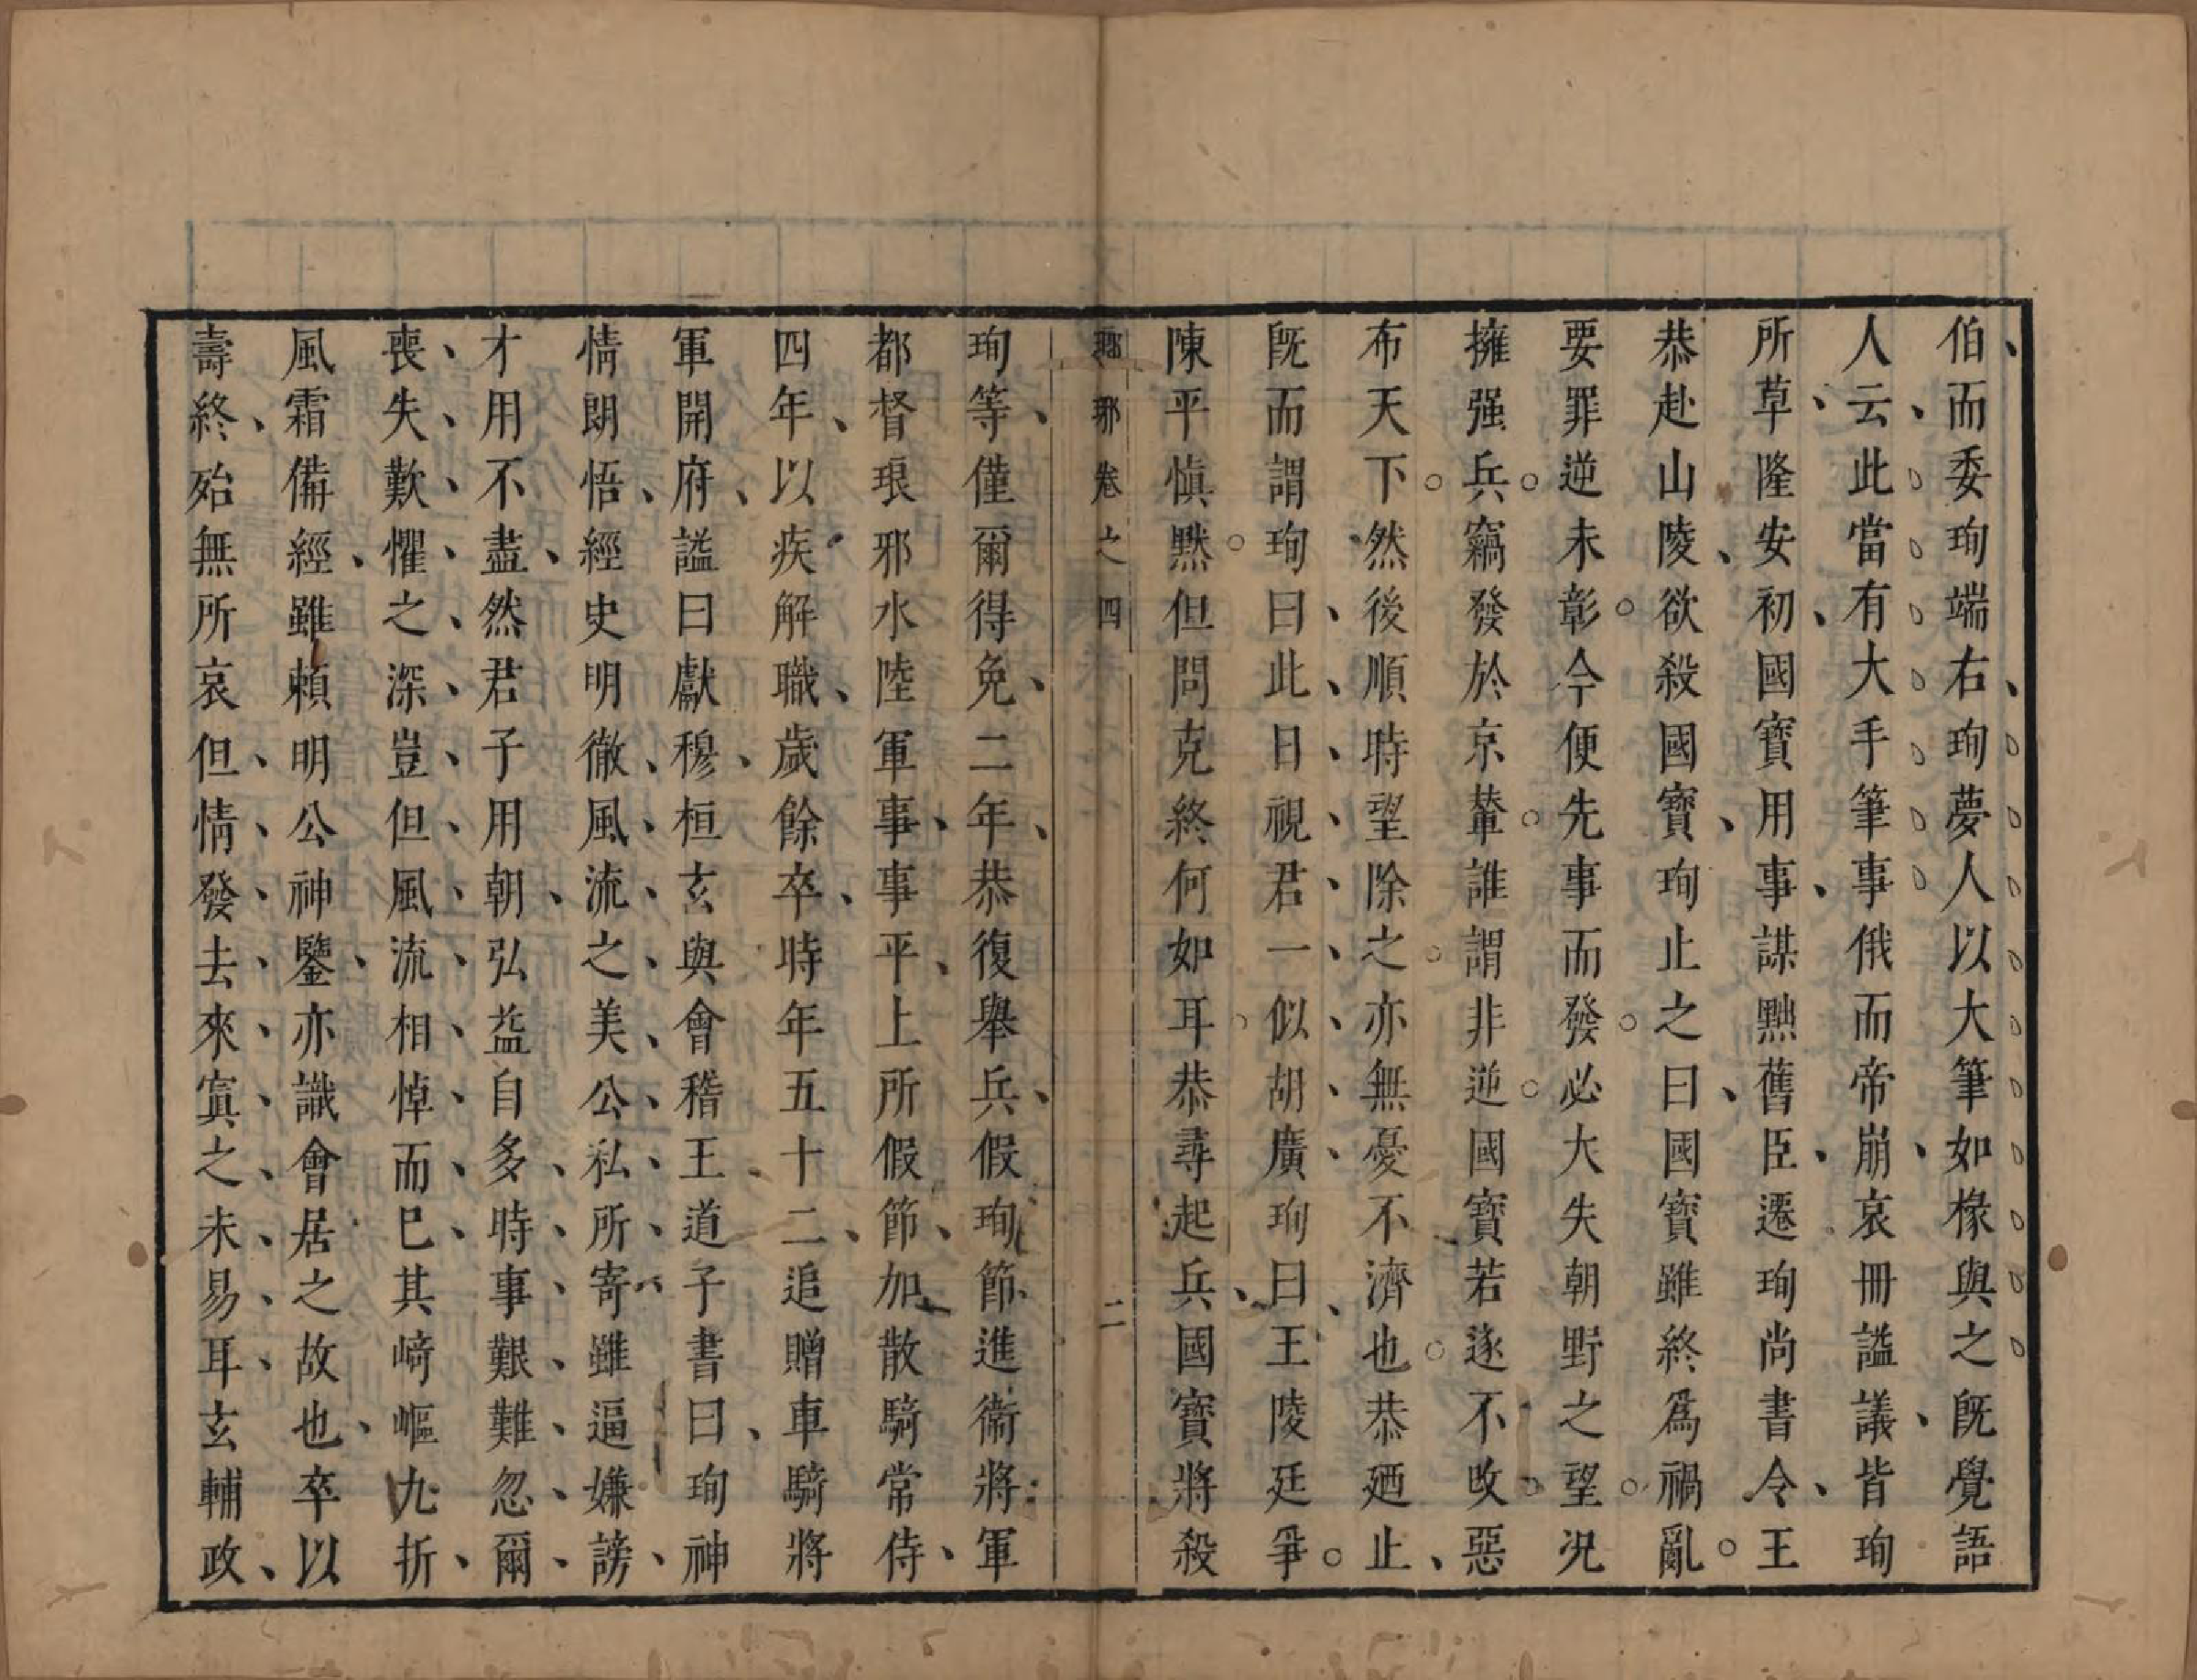 伯而委珣端右珣夢人以大筆如椽與之旣覺語
人云此當有大手筆事俄而帝崩哀冊諡議皆珣
所草隆安初國寶用事謀黜舊臣遷珣尚書令王
恭赴山陵欲殺國寶珣止之曰國寶雖終爲禍亂
要罪逆未彰今便先事而發必大失朝野之望况
擁强兵竊發於京輦誰謂非逆國寶若遂不改惡
布天下然後順時望除之亦無憂不濟也恭廼止
旣而謂珣曰此日視君一似胡廣珣曰王陵廷爭
陳平愼默但問克終何如耳恭尋起兵國寶將殺
瑯琊卷之四 二
珣等僅爾得免二年恭復舉兵假珣節進衞將軍
都督琅邪水陸軍事事平上所假節加散騎常侍
四年以疾解職歲餘卒時年五十二追贈車騎將
軍開府諡曰獻穆桓玄與會稽王道子書曰珣神
情朗悟經史明徹風流之美公私所寄雖逼嫌謗
才用不盡然君子用朝弘益自多時事艱難忽爾
喪失歎懼之深豈但風流相悼而已其崎嶇九折
風霜備經雖賴明公神鑒亦識會居之故也卒以
壽終殆無所哀但情發去來寘之未易耳玄輔政